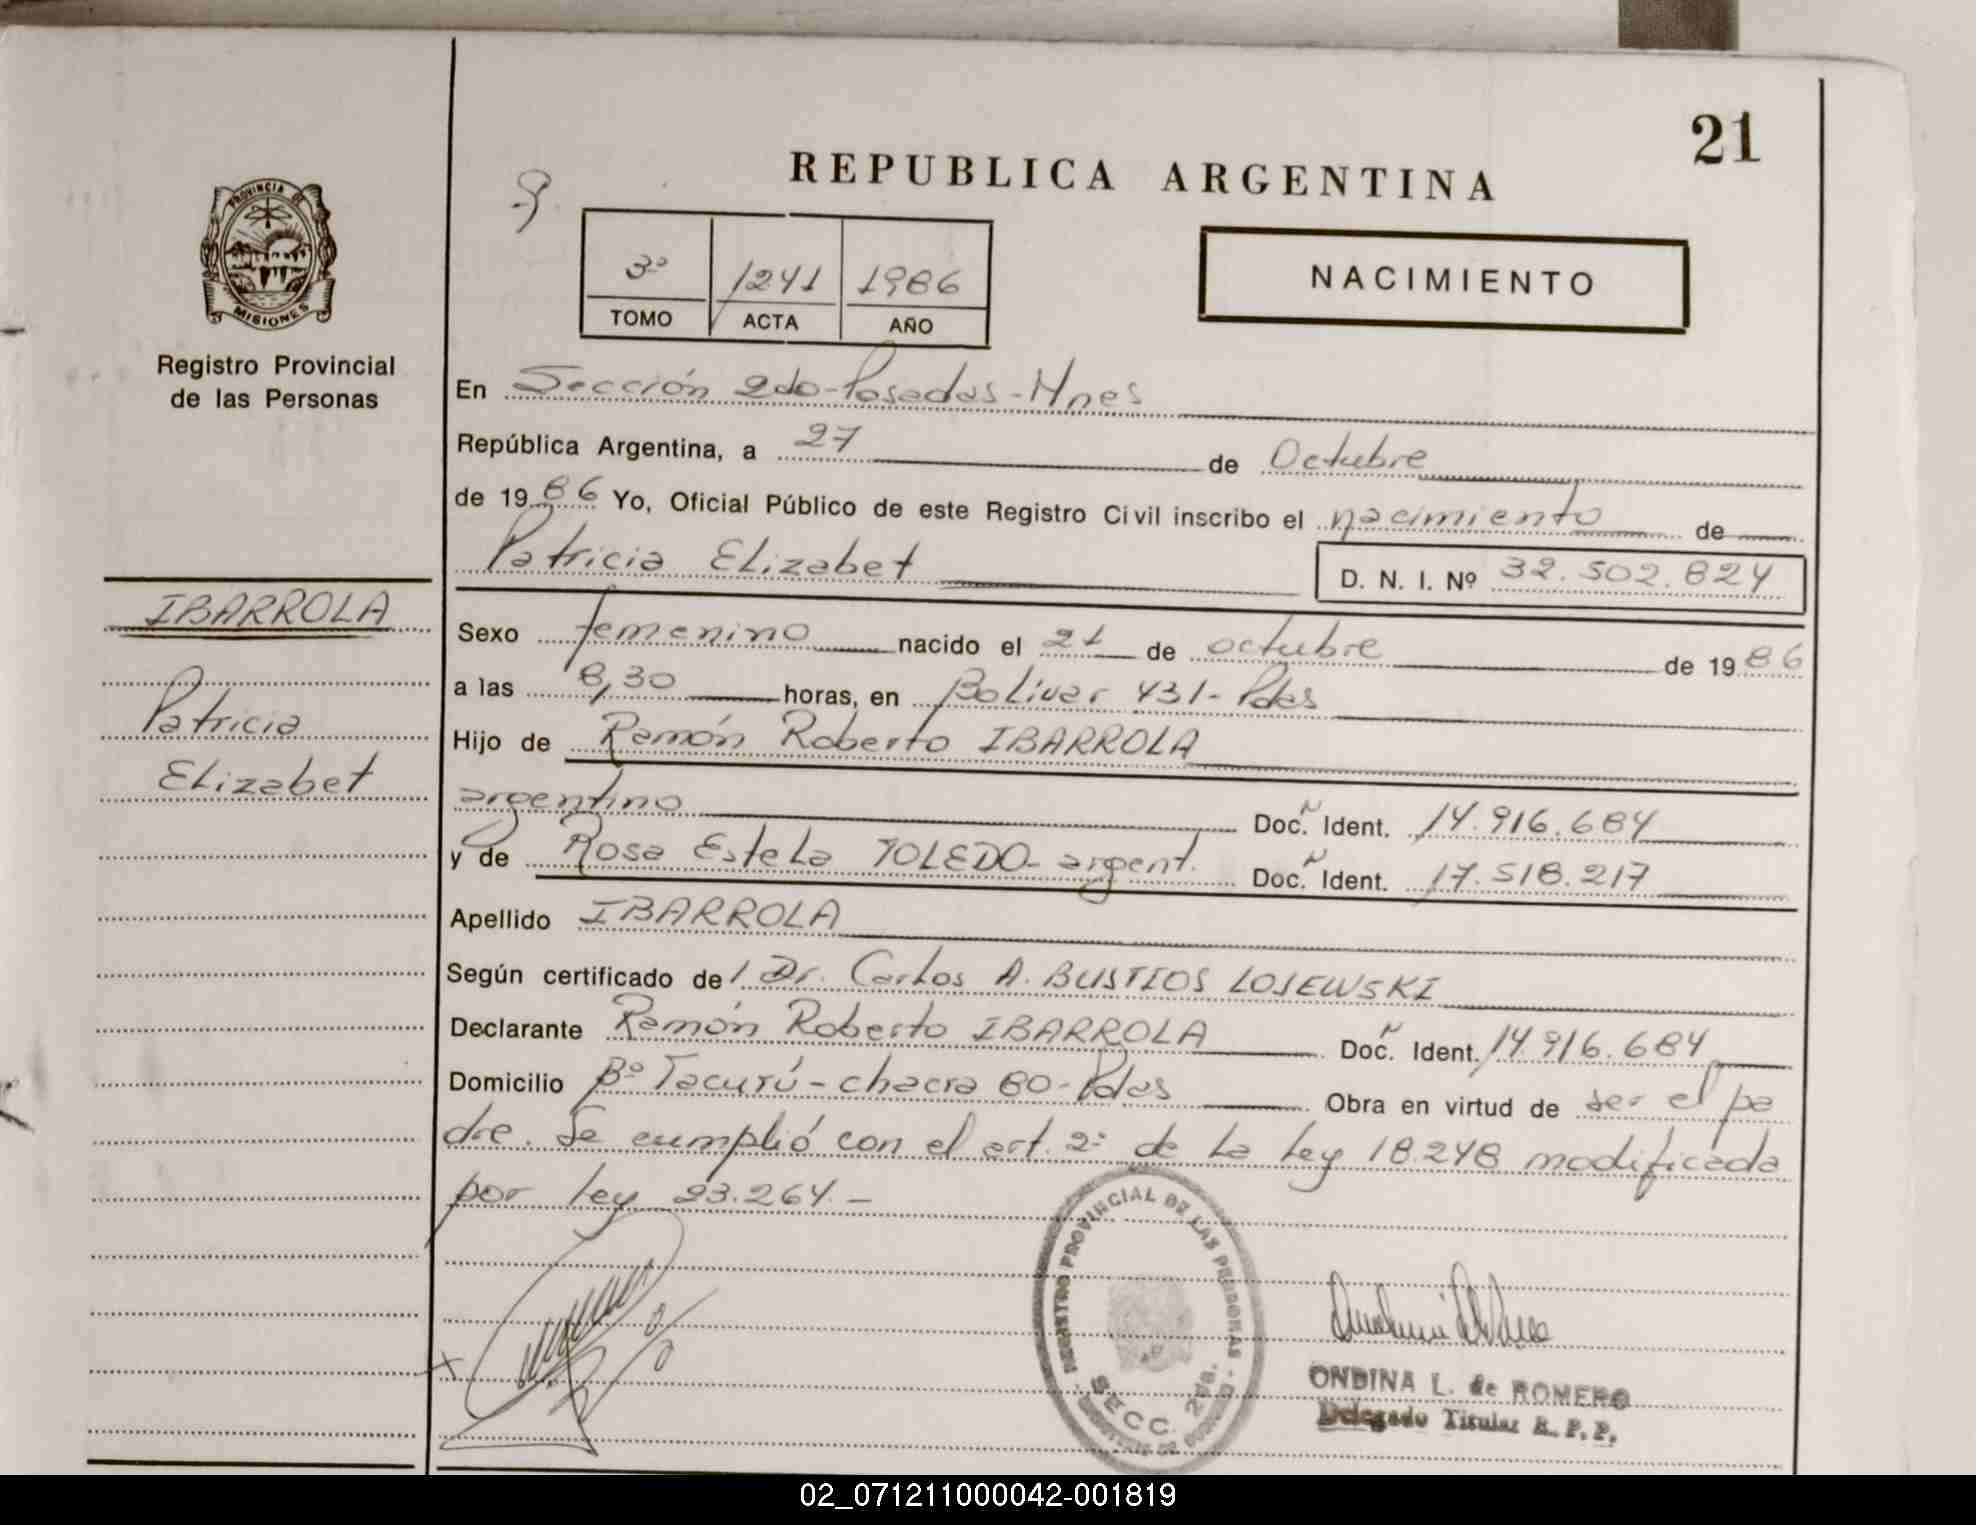 21
REPUBLICA ARGENTINA
PROVINCIA DE
MISIONES
Registro Provincial
de las Personas
3º 1241 1986
TOMO ACTA AÑO
NACIMIENTO
En Sección 2do-Posadas-Mnes
República Argentina, a 27 de Octubre
de 1986 Yo, Oficial Público de este Registro Civil inscribo el nacimiento de
Patricia Elizabet D. N. I. Nº 32.502.824
IBARROLA
Patricia
Elizabet
Sexo femenino nacido el 21 de octubre de 1986
a las 8,30 horas, en Bolivar 431-Pdas
Hijo de Ramón Roberto IBARROLA
argentino Doc. Ident. 14.916.684
y de Rosa Estela TOLEDO-argent. Doc. Ident. 17.518.217
Apellido IBARROLA
Según certificado de Dr. Carlos A. BUSTIOS LOSEWSKI
Declarante Ramón Roberto IBARROLA Doc. Ident. 14.916.684
Domicilio Bº Tacurú-chacra 80-Pdas Obra en virtud de ser el pa
dre. Se cumplió con el art. 2º de la Ley 18.248 modificada
por ley 23.264.-
REGISTRO PROVINCIAL DE LAS PERSONAS
SECC. 2da.
ONDINA L. de ROMERO
Delegado Titular R. P. P.
02_071211000042-001819